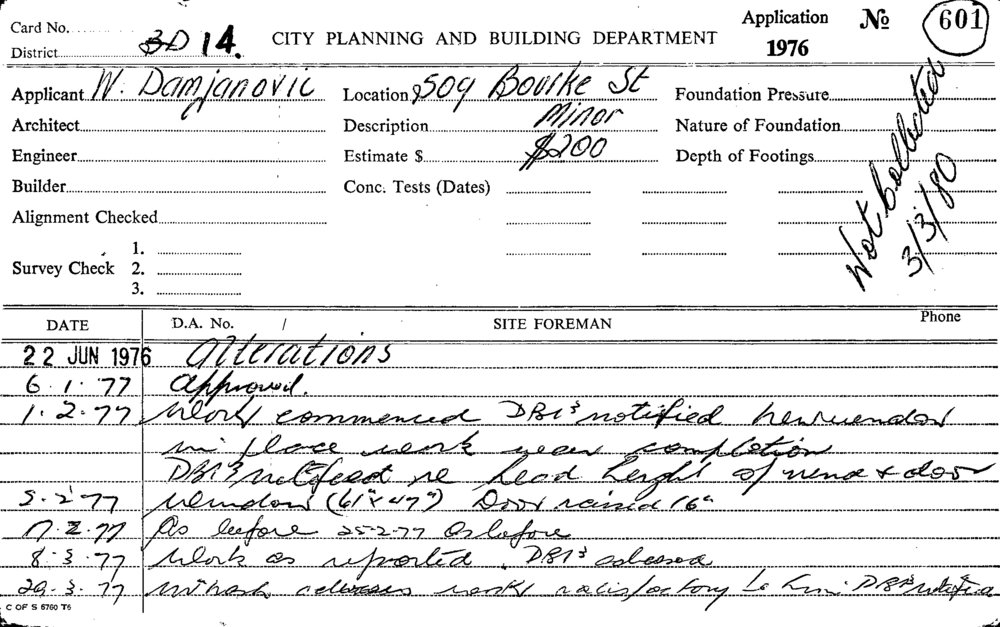 Card No. Application No 601
District 3D 14. CITY PLANNING AND BUILDING DEPARTMENT 1976
Applicant W. Damjanovic Location 509 Bourke St Foundation Pressure
Architect Description Minor Nature of Foundation
Engineer Estimate $ $200 Depth of Footings
Builder Conc. Tests (Dates)
Not Collected
3/3/80
Alignment Checked
1.
Survey Check 2.
3.
DATE D.A. No. / SITE FOREMAN Phone
22 JUN 1976 Alterations
6.1.'77 Approved.
1.2.77 Work commenced DBI's notified new window
in place work near completion
DBI's re head height of & door
2.77 window (61"x47") Door raised 6"
2.77 As before 25-2-77 As before
8.3.77 Work as reported. DBI's
29.3.77 work satisfactory to DBI's
C OF S 6760 T6